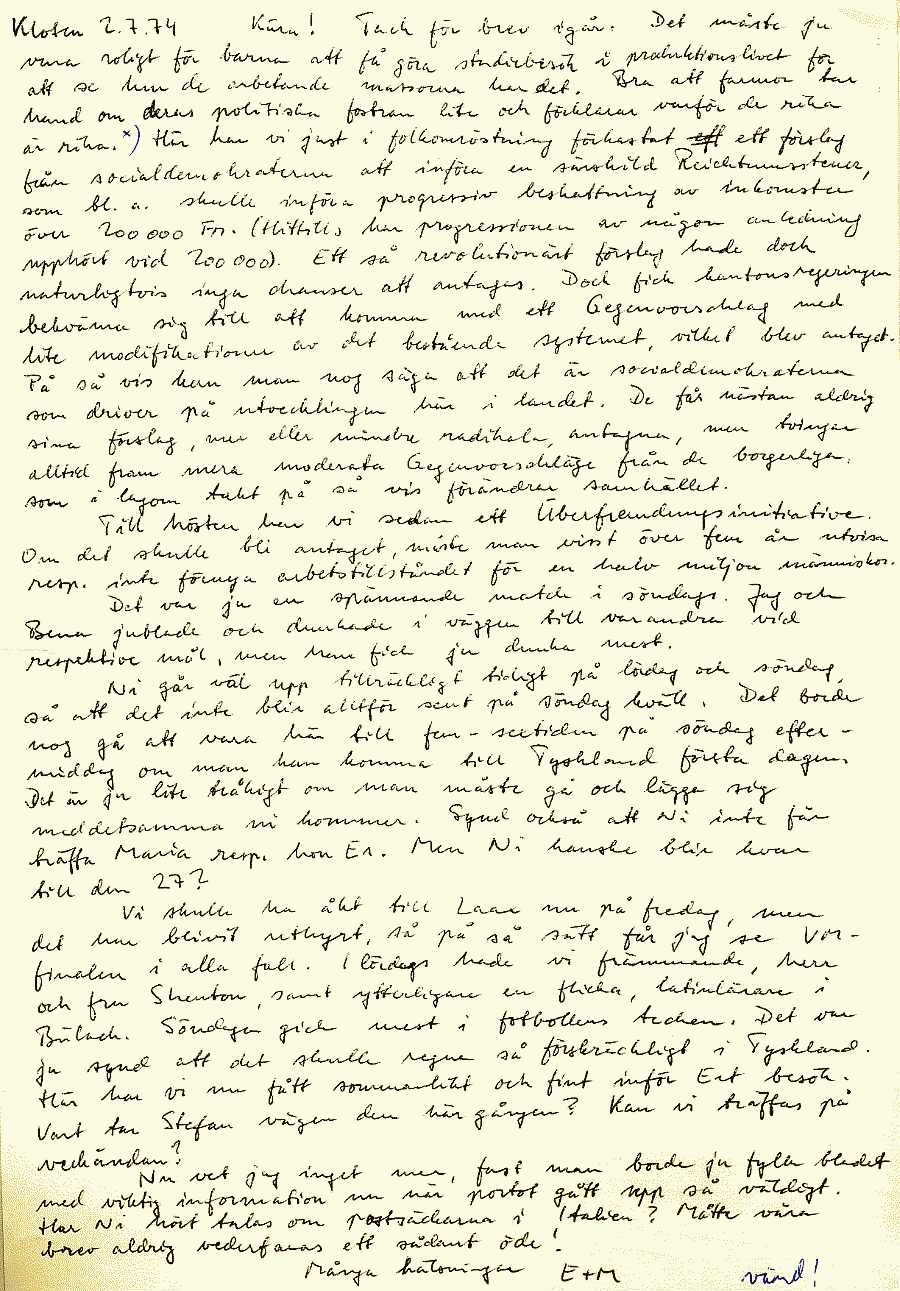 Kloten 2.7.74 Kära! Tack för brev igår. Det måste ju
vara roligt för barna att få göra studiebesök i produktionslivet för
att se hur de arbetande massorna har det. Bra att farmor tar
hand om deras politiska fostran lite och förklarar varför de rika
är rika. x) Här har vi just i folkomröstning förkastat ett ett förslag
från socialdemokraterna att införa en särskild Reichtumssteuer,
som bl. a. skulle införa progressiv beskattning av inkomster
över 200 000 Frs. (Hittills har progressionen av någon anledning
upphört vid 200 000). Ett så revolutionärt förslag hade dock
naturligtvis inga chanser att antagas. Dock fick kantonsregeringen
bekväma sig till att komma med ett Gegenvorschlag med
lite modifikationer av det bestående systemet, vilket blev antaget.
På så vis kan man nog säga att det är socialdemokraterna
som driver på utvecklingen här i landet. De får nästan aldrig
sina förslag, mer eller mindre radikala, antagna, men tvingar
alltid fram mera moderata Gegenvorschläge från de borgerliga,
som i lagom takt på så vis förändrar samhället.
Till hösten har vi sedan ett Überfremdungsinitiative.
Om det skulle bli antaget, måste man visst över fem år utvisa
resp. inte förnya arbetstillståndet för en halv miljon människor.
Det var ju en spännande match i söndags. Jag och
Bena jublade och dunkade i väggen till varandra vid
respektive mål, men han fick ju dunka mest.
Ni går väl upp tillräckligt tidigt på lördag och söndag,
så att det inte blir alltför sent på söndag kväll. Det borde
nog gå att vara här till fem-sextiden på söndag efter-
middag om man kan komma till Tyskland första dagen.
Det är ju lite tråkigt om man måste gå och lägga sig
meddetsamma ni kommer. Synd också att Ni inte får
träffa Maria resp. hon Er. Men Ni kanske blir kvar
till den 27?
Vi skulle ha åkt till Laax nu på fredag, men
det har blivit uthyrt, så på så sätt får jag se VM-
finalen i alla fall. I lördags hade vi främmande, herr
och fru Shenton, samt ytterligare en flicka, latinlärare i
Bülach. Söndagen gick mest i fotbollens tecken. Det var
ju synd att det skulle regna så förskräckligt i Tyskland.
Här har vi nu fått sommarlikt och fint inför Ert besök.
Vart tar Stefan vägen den här gången? Kan vi träffas på
veckändan?
Nu vet jag inget mer, fast man borde ju fylla bladet
med viktig information nu när portot gått upp så väldigt.
Har Ni hört talas om postsäckarna i Italien? Måtte våra
brev aldrig vederfaras ett sådant öde!
Många hälsningar E+M vänd!